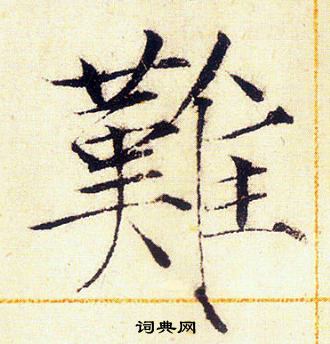 難
词典网